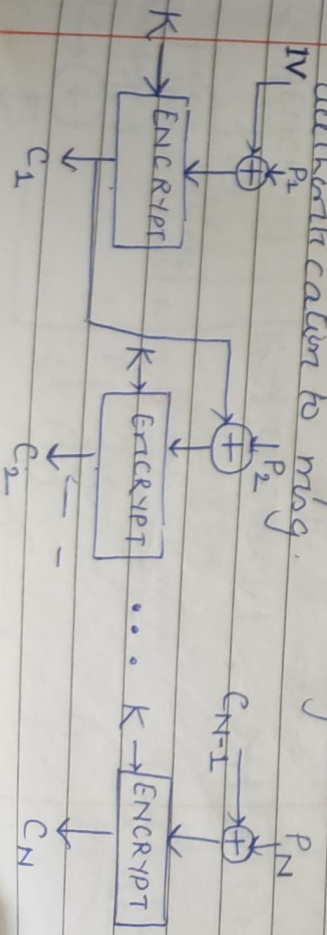 cation to msg.
IV P1 P2 CN-1 PN
K ENCRYPT K ENCRYPT ... K ENCRYPT
C1 C2 - - CN